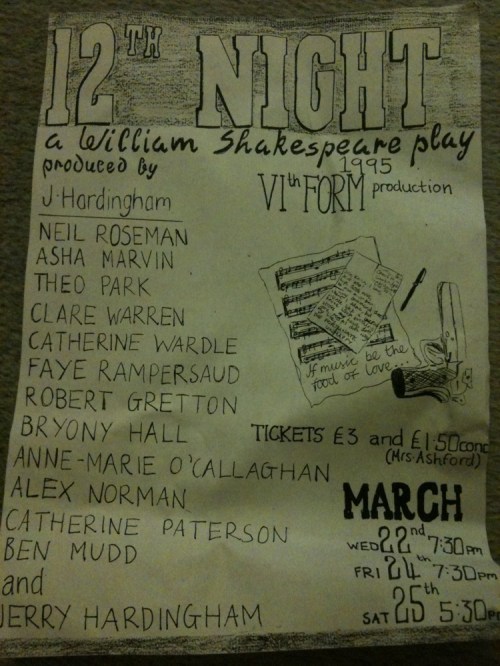 12TH NIGHT
a William Shakespeare play
produced by
J·Hardingham
1995
VIth FORM production
NEIL ROSEMAN
ASHA MARVIN
THEO PARK
CLARE WARREN
CATHERINE WARDLE
FAYE RAMPERSAUD
ROBERT GRETTON
BRYONY HALL
ANNE-MARIE O'CALLAGHAN
ALEX NORMAN
CATHERINE PATERSON
BEN MUDD
and
JERRY HARDINGHAM
If music be the
food of love...
TICKETS £3 and £1·50conc
(Mrs·Ashford)
MARCH
WED 22nd 7:30pm
FRI 24th 7:30pm
SAT 25th 5:30pm